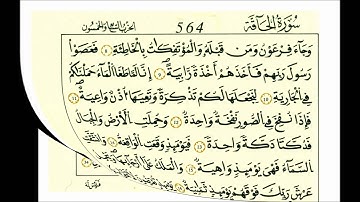 سُورَةُ الْحَاقَّةِ 564 الحزب السابع والخمسون
وَجَآءَ فِرْعَوْنُ وَمَن قَبْلَهُۥ وَالْمُؤْتَفِكَٰتُ بِالْخَاطِئَةِ فَعَصَوْا
رَسُولَ رَبِّهِمْ فَأَخَذَهُمْ أَخْذَةً رَّابِيَةً إِنَّا لَمَّا طَغَا الْمَآءُ حَمَلْنَٰكُمْ
فِي الْجَارِيَةِ لِنَجْعَلَهَا لَكُمْ تَذْكِرَةً وَتَعِيَهَآ أُذُنٌ وَٰعِيَةٌ
فَإِذَا نُفِخَ فِي الصُّورِ نَفْخَةٌ وَٰحِدَةٌ وَحُمِلَتِ الْأَرْضُ وَالْجِبَالُ
فَدُكَّتَا دَكَّةً وَٰحِدَةً فَيَوْمَئِذٍ وَقَعَتِ الْوَاقِعَةُ وَانشَقَّتِ
السَّمَآءُ فَهِيَ يَوْمَئِذٍ وَاهِيَةٌ وَالْمَلَكُ عَلَىٰٓ أَرْجَآئِهَا
عَرْشَ رَبِّكَ فَوْقَهُمْ يَوْمَئِذٍ